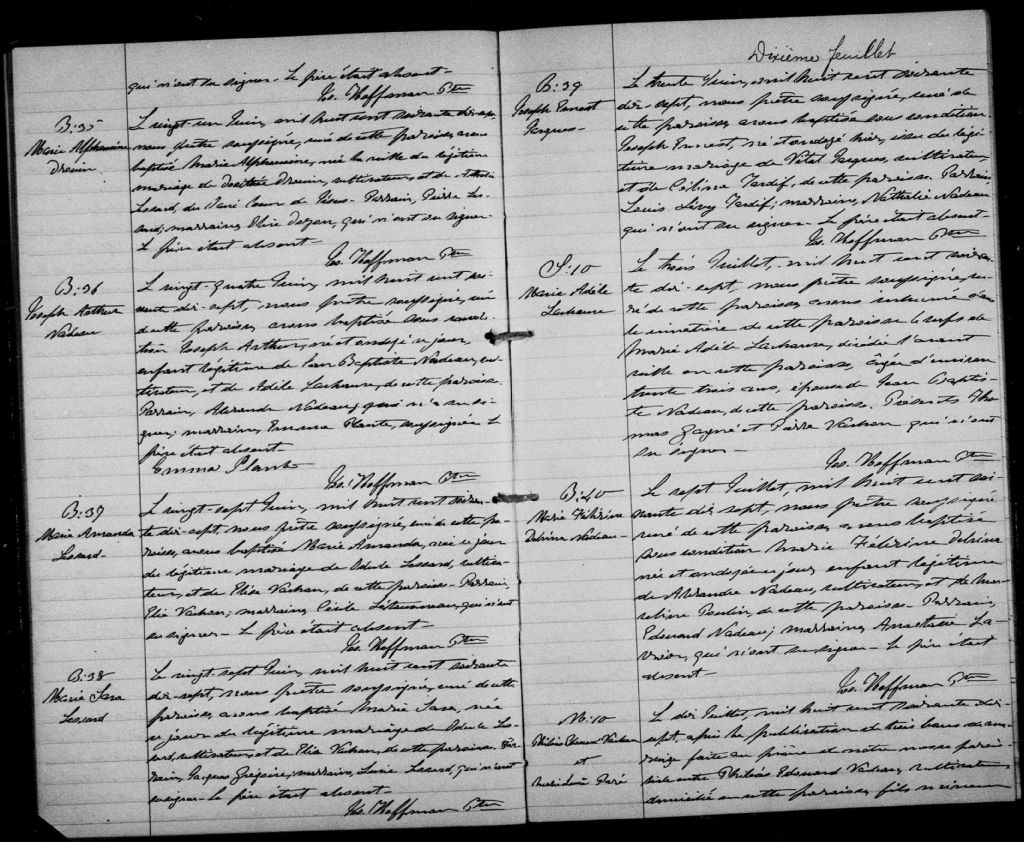 qui n'ont su signer. Le père était absent.
Jos. Hoffman Ptre
B:35
Marie Alphonsine
Drouin
Le vingt-un Juin, mil huit cent soixante dix-sept,
nous prêtre soussigné, curé de cette paroisse, avons
baptisé Marie Alphonsine, née la veille du légitime
mariage de Drouin, cultivateur, et de
Lessard, du Sacré Coeur de Jésus. Parrain, Pierre Les-
sard; marraine, Elise Doyon, qui n'ont su signer.
Le père était absent.
Jos. Hoffman Ptre
B:36
Joseph Arthur
Nadeau
Le vingt-quatre Juin, mil huit cent soi-
xante dix-sept, nous prêtre soussigné, curé
de cette paroisse, avons baptisé sous condi-
tion Joseph Arthur, né et ondoyé ce jour,
enfant légitime de Jean Baptiste Nadeau, cul-
tivateur, et de Adèle Lachance, de cette paroisse.
Parrain, Alexandre Nadeau, qui n'a su si-
gner; marraine, Emma Plante, soussignée. Le
père était absent.
Emma Plante
Jos. Hoffman Ptre
B:37
Marie Amanda
Lessard
Le vingt-sept Juin, mil huit cent soixan-
te dix-sept, nous prêtre soussigné, curé de cette pa-
roisse, avons baptisé Marie Amanda, née ce jour
du légitime mariage de Lessard, cultiva-
teur, et de Elise Vachon, de cette paroisse. Parrain,
Elie Vachon; marraine, Cécile Létourneau, qui n'ont
su signer. Le père était absent.
Jos. Hoffman Ptre
B:38
Marie Sara
Lessard
Le vingt-sept Juin, mil huit cent soixante
dix-sept, nous prêtre soussigné, curé de cette
paroisse, avons baptisé Marie Sara, née
ce jour du légitime mariage de Les-
sard, cultivateur, et de Elise Vachon, de cette paroisse. Par-
rain, Jacques Grégoire; marraine, Lessard, qui n'ont
su signer. Le père était absent.
Jos. Hoffman Ptre
Dixième feuillet
B:39
Joseph Ernest
Jacques
Le trente Juin, mil huit cent soixante
dix-sept, nous prêtre soussigné, curé de
cette paroisse, avons baptisé sous condition
Joseph Ernest, né et ondoyé hier, issu du légi-
time mariage de Vital Jacques, cultivateur,
et de Céline Tardif, de cette paroisse. Parrain,
Louis Lévy Tardif; marraine, Nathalie Nadeau
qui n'ont su signer. Le père était absent.
Jos. Hoffman Ptre
S:10
Marie Adèle
Lachance
Le trois Juillet, mil huit cent soixan-
te dix-sept, nous prêtre soussigné, cu-
ré de cette paroisse, avons inhumé dans
le cimetière de cette paroisse le corps de
Marie Adèle Lachance, décédée l'avant
veille en cette paroisse, âgée d'environ
trente trois ans, épouse de Jean Baptis-
te Nadeau, de cette paroisse. Présents Tho-
mas Gagné et Pierre Vachon qui n'ont
su signer.
Jos. Hoffman Ptre
B:40
Marie Félixine
Delvina Nadeau
Le sept Juillet, mil huit cent soi-
xante dix sept, nous prêtre soussigné
curé de cette paroisse, avons baptisé
sous condition Marie Félixine Delvina
née et ondoyée ce jour, enfant légitime
de Alexandre Nadeau, cultivateur, et de
Poulin, de cette paroisse. Parrain,
Edouard Nadeau; marraine, Anastasie La-
, qui n'ont su signer. Le père était
absent.
Jos. Hoffman Ptre
M:10
Philias Edouard Vachon
et
Paré
Le dix Juillet, mil huit cent soixante dix-
sept, après la publication de trois bans de ma-
riage faite au prône de notre messe parois-
siale entre Philias Edouard Vachon, cultivateur
domicilié en cette paroisse, fils mineur